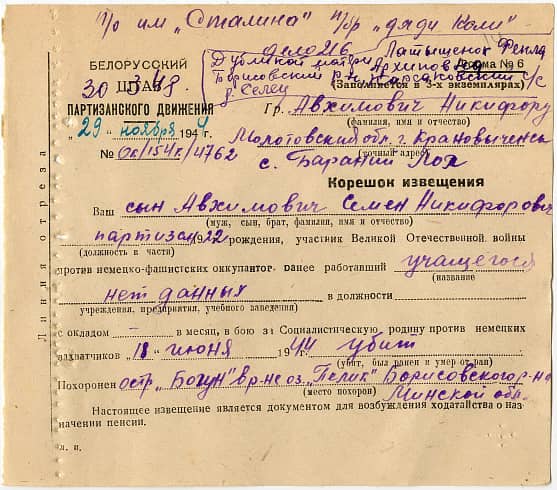 п/о им „Сталина" п/бр „дяди Коли"
дело 216
Дубликат матери Латышенок Фекла
Борисовский р-н Корсаковский с/с Архиповна
д. Селец
БЕЛОРУССКИЙ
ШТАБ
ПАРТИЗАНСКОГО ДВИЖЕНИЯ
30 3 48
„29" ноября 1944
№ Ок/154к/4762
Форма № 6
(Заполняется в 3-х экземплярах)
Гр. Авхимович Никифору
(фамилия, имя и отчество)
Молотовский обл. г.
(точный адрес)
с.
Корешок извещения
Ваш сын Авхимович Семен Никифорович
(муж, сын, брат, фамилия, имя и отчество)
партизан 1922 рождения, участник Великой Отечественной войны
(должность в части)
против немецко-фашистских оккупантов ранее работавший учащегося
(название
нет данных в должности
учреждения, предприятия, учебного заведения)
с окладом – в месяц, в бою за Социалистическую родину против немецких
захватчиков „18" июня 1944 убит
(убит, был ранен и умер от ран)
Похоронен остр. „Богун" в р-не оз. „Пелик" Борисовского р-на
(место похорон) Минской обл.
Настоящее извещение является документом для возбуждения ходатайства о наз-
начении пенсии.
л. п.
Линия отреза